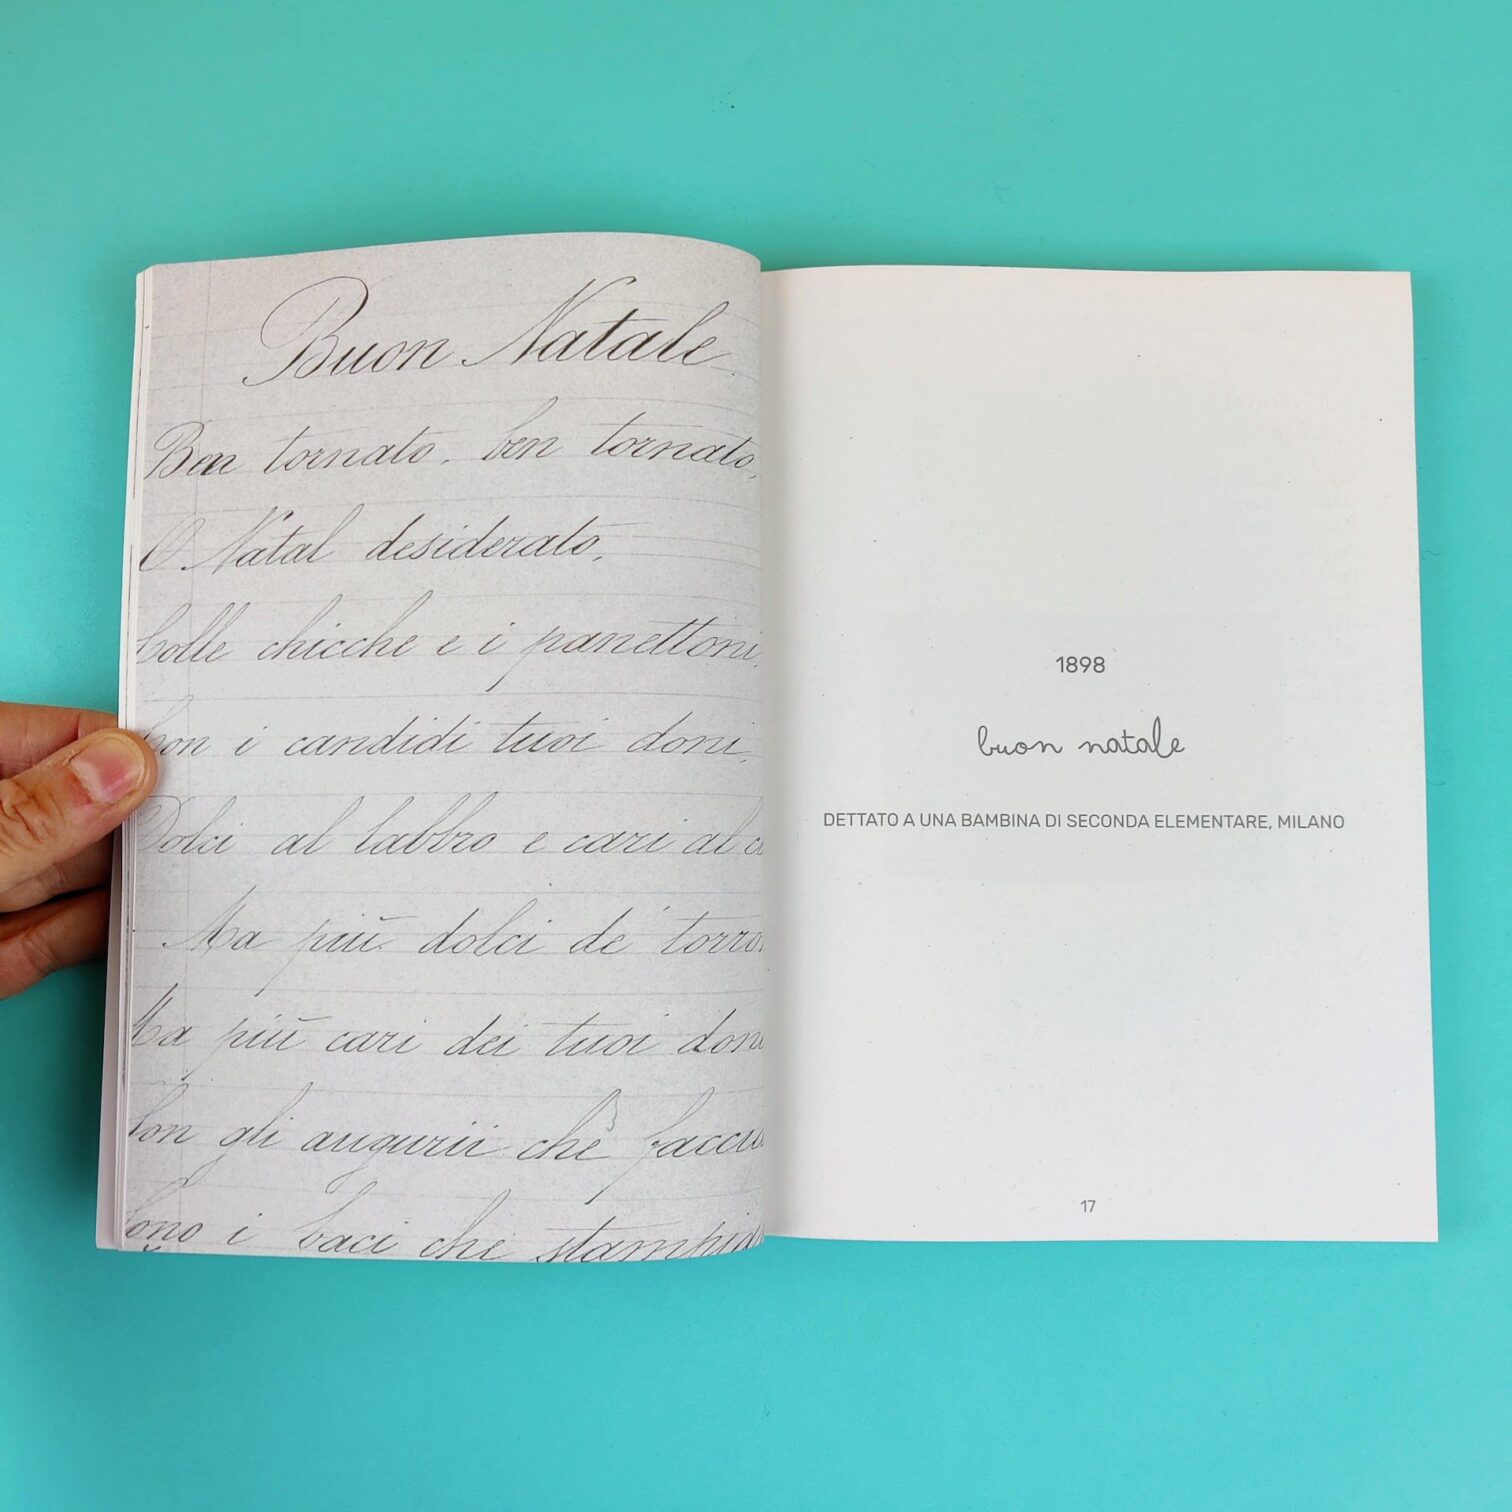 Buon Natale
Ben tornato, ben tornato,
O Natal desiderato,
Colle chicche e i panettoni,
Con i candidi tuoi doni,
Dolci al labbro e cari al
Ma più dolci de' torro
Ma più cari dei tuoi doni
Con gli augurii che
Sono i baci che
1898
buon natale
DETTATO A UNA BAMBINA DI SECONDA ELEMENTARE, MILANO
17